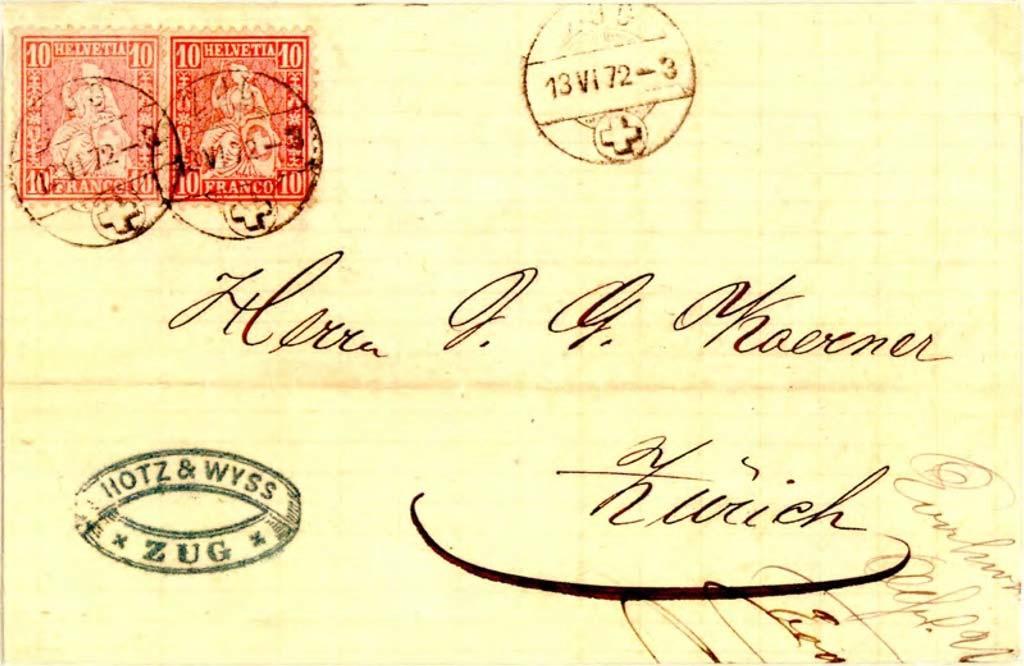 10 HELVETIA 10
10 FRANCO 10
10 HELVETIA 10
10 FRANCO 10
ZUG
13 VI 72-3
Herrn J. G. Koerner
Zürich
HOTZ & WYSS
ZUG